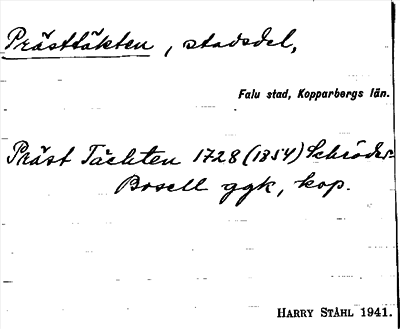 Prästtäkten, stadsdel,
Falu stad, Kopparbergs län.
Präst Tächten 1728 (1854) Schröder
Bosell ggk, kop.
HARRY STÅHL 1941.